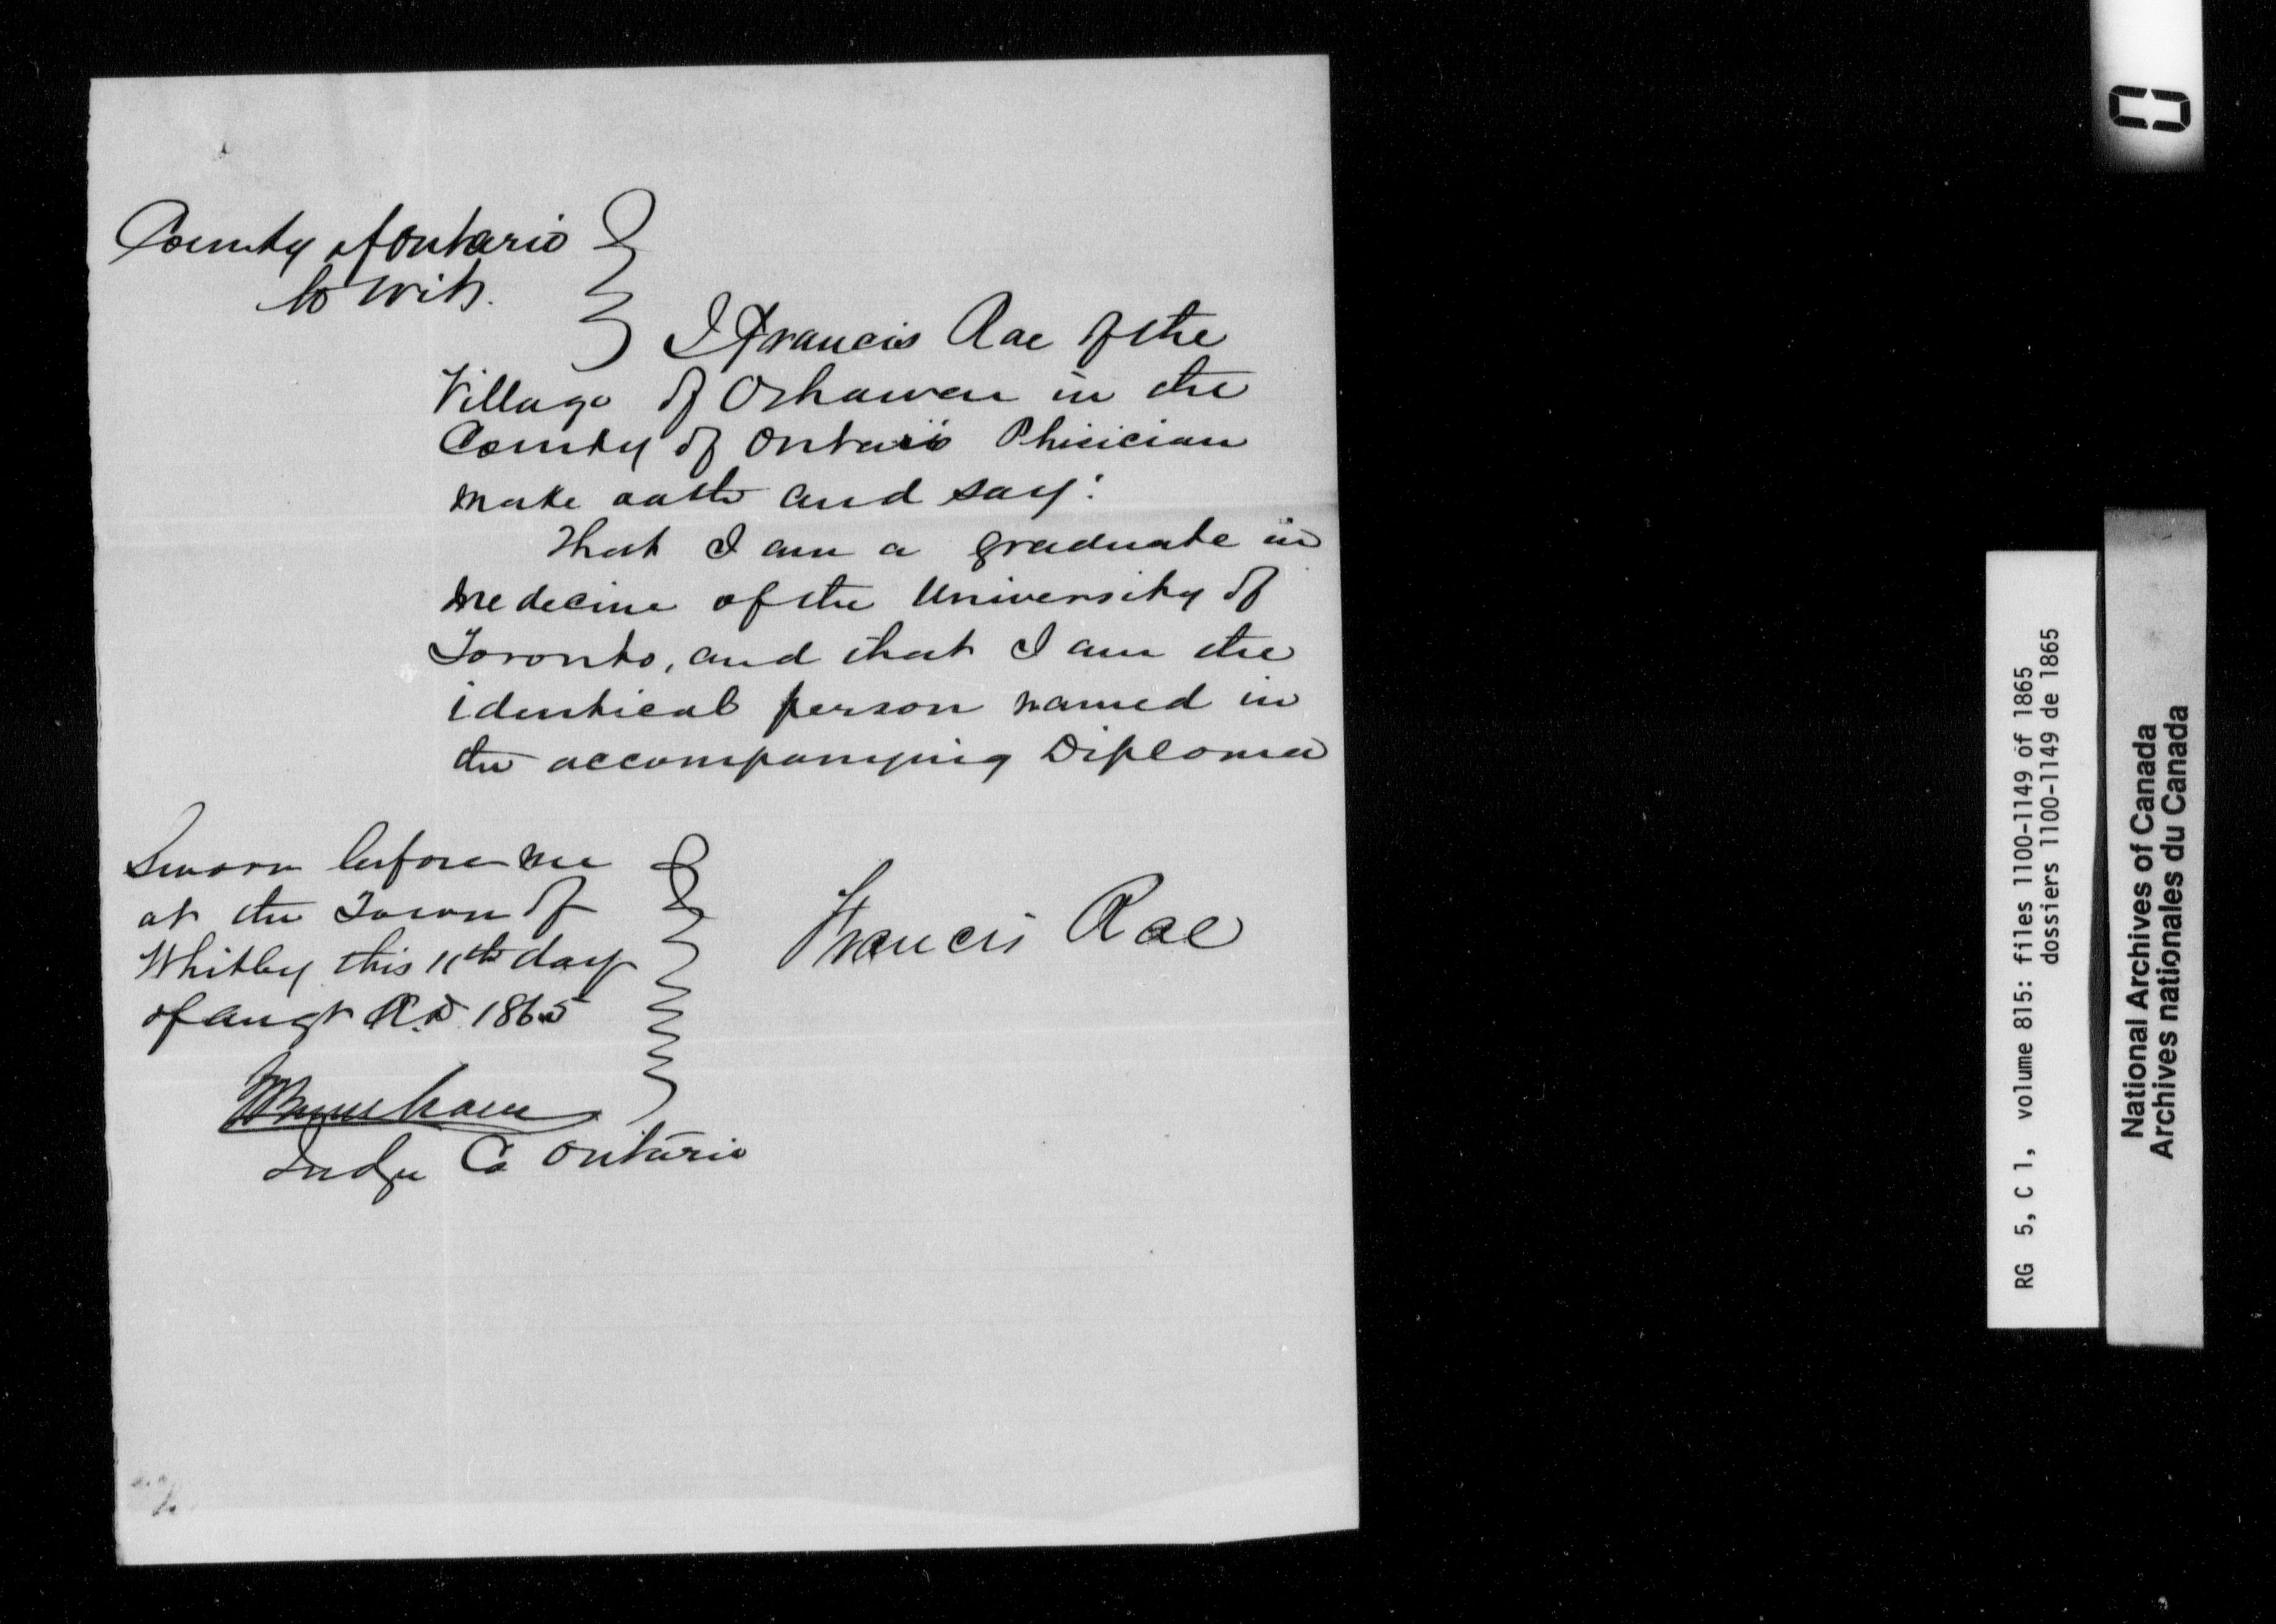 County of Ontario
to wit.
I Francis Rae of the
Village of Oshawa in the
County of Ontario Phisician
make oath and say:
That I am a graduate in
medecine of the University of
Toronto, and that I am the
identical person named in
the accompanying Diploma
Sworn before me
at the Town of
Whitby this 11th day
of augt A.D. 1865
Francis Rae
Judge Co Ontario
RG 5, C 1, volume 815: files 1100-1149 of 1865
dossiers 1100-1149 de 1865
National Archives of Canada
Archives nationales du Canada